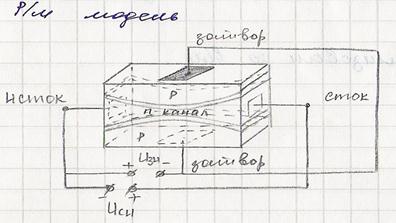 Р/м модель
затвор
исток
сток
P
n-канал
P
Uзи
+ -
затвор
- +
Uси